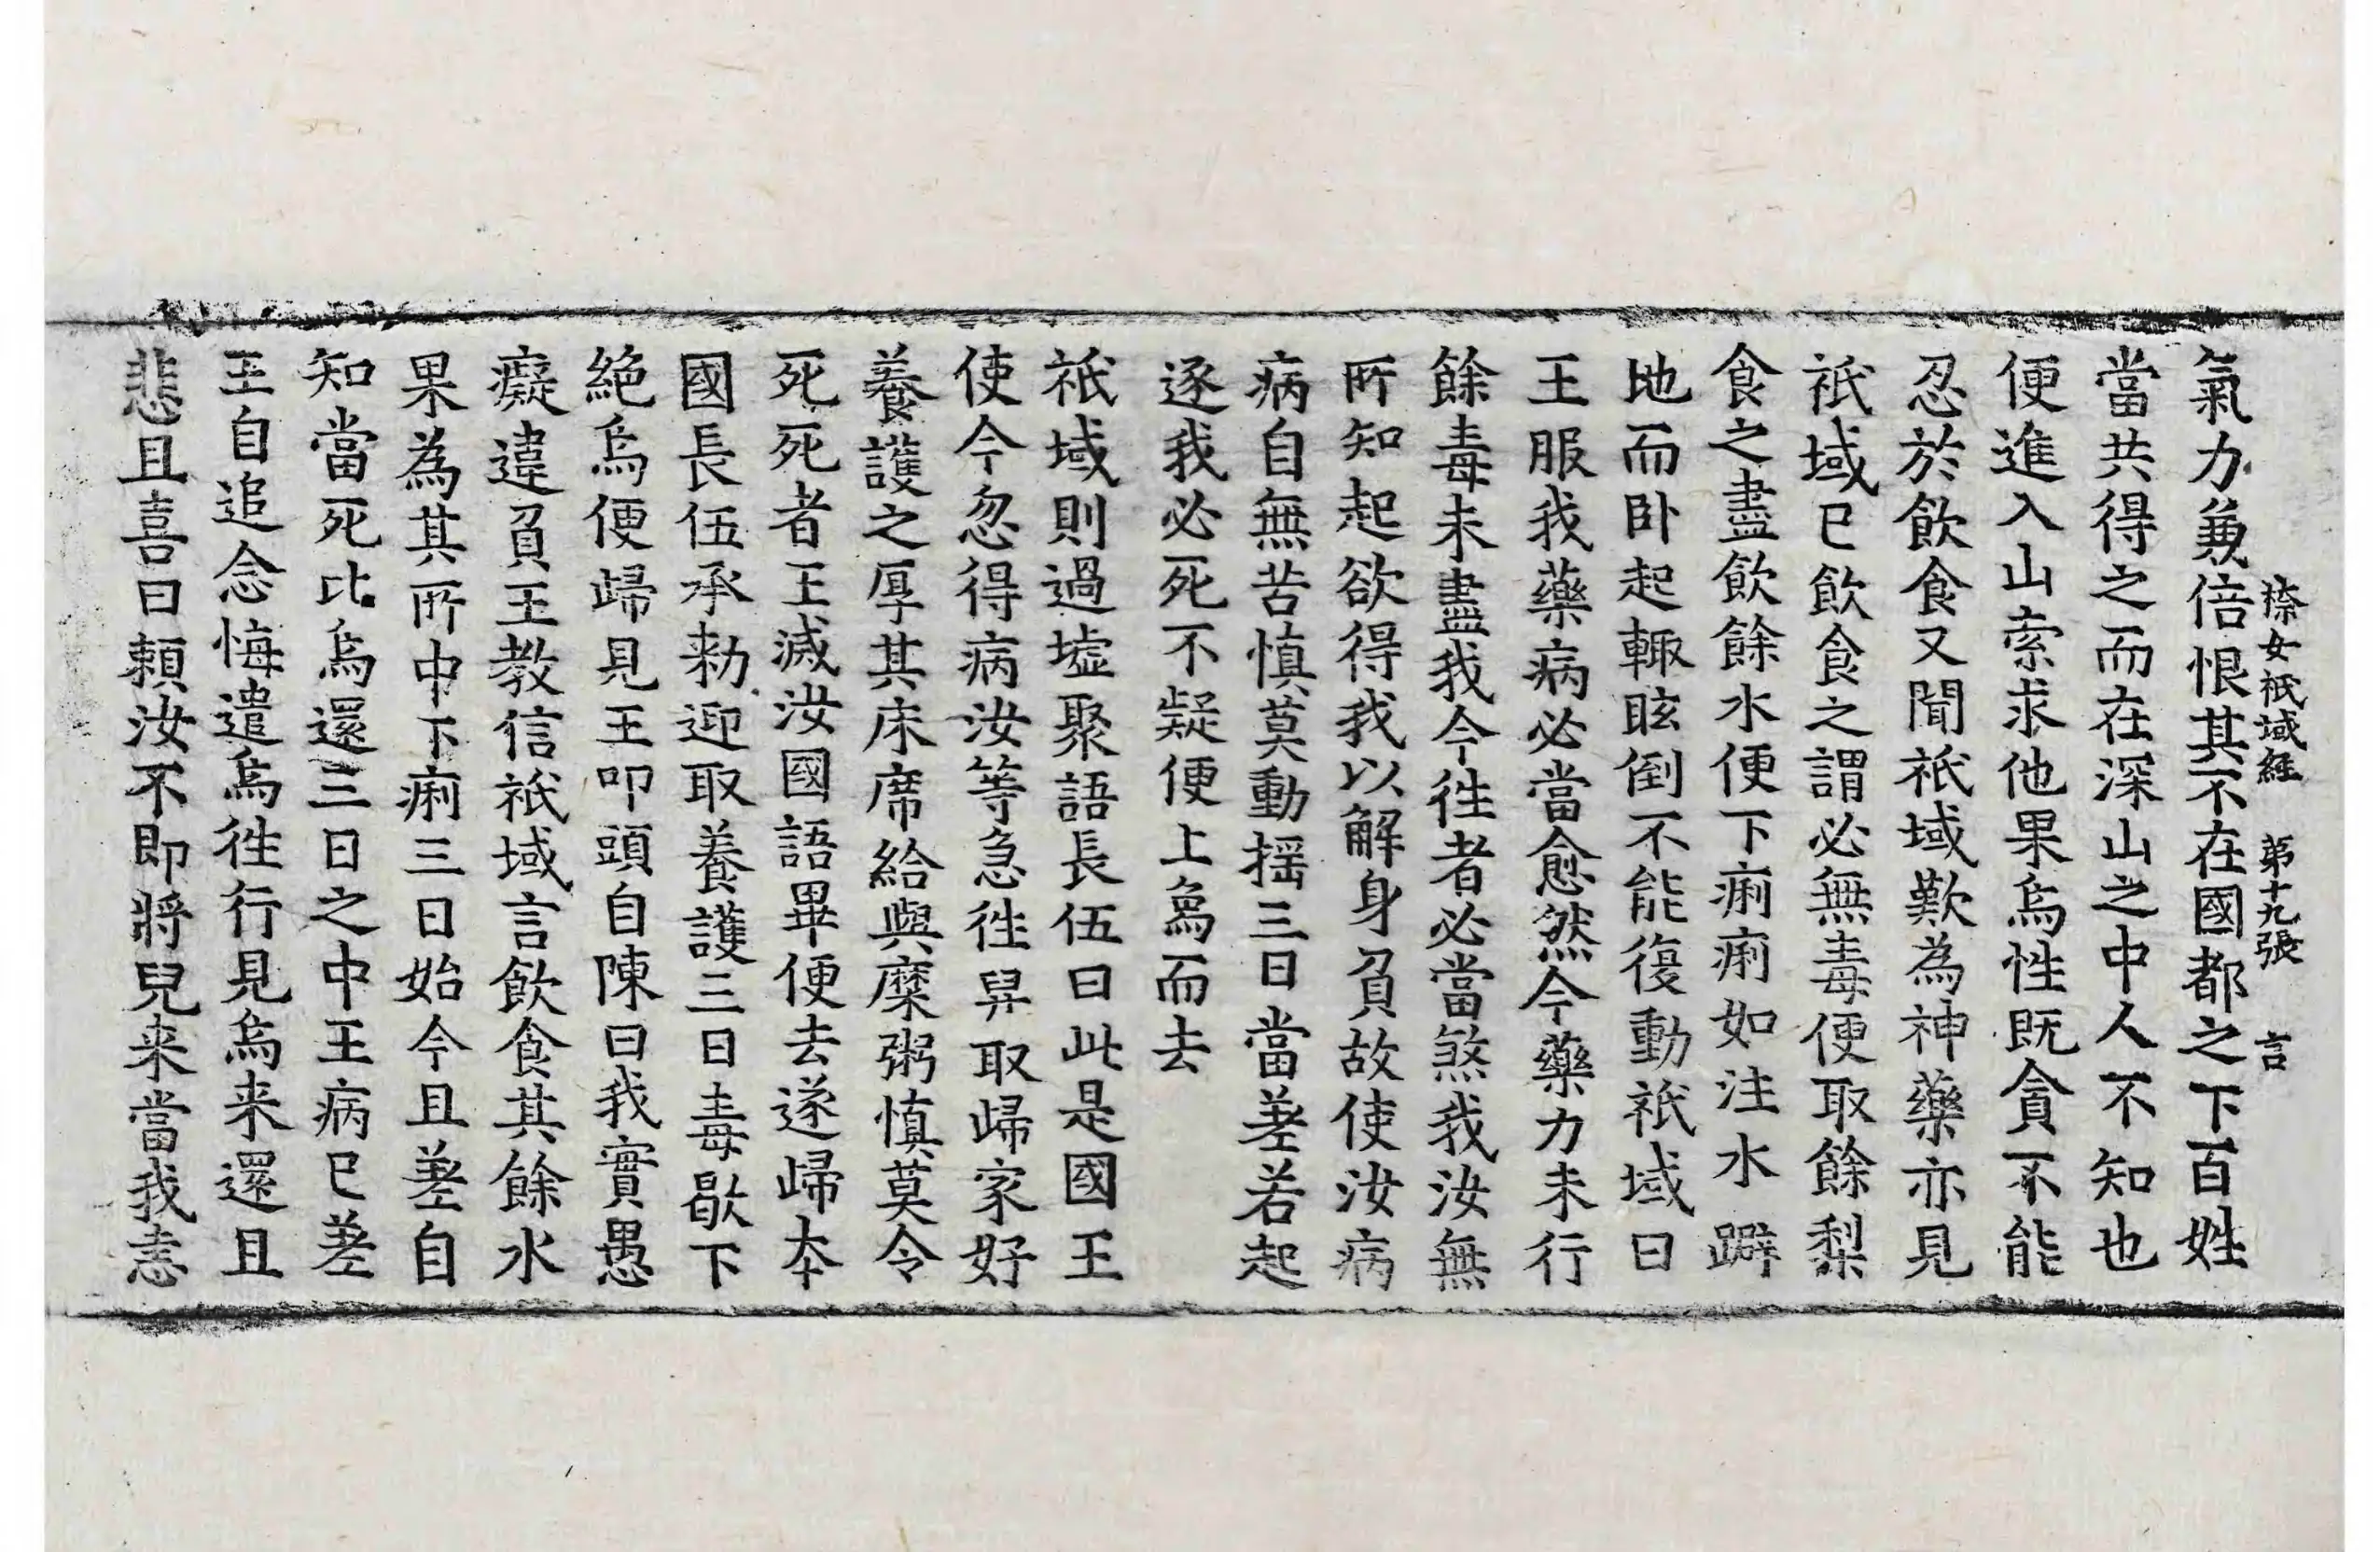 㮈女祇域經 第十九張 言
氣力兼倍恨其不在國都之下百姓
當共得之而在深山之中人不知也
便進入山索求他果烏性既貪不能
忍於飲食又聞祇域歎為神藥亦見
祇域已飲食之謂必無毒便取餘梨
食之盡飲餘水便下痢痢如注水躃
地而卧起輙眩倒不能復動祇域曰
王服我藥病必當愈然今藥力未行
餘毒未盡我今徃者必當煞我汝無
所知起欲得我以解身負故使汝病
病自無苦慎莫動揺三日當差若起
逐我必死不疑便上烏而去
祇域則過墟聚語長伍曰此是國王
使今忽得病汝等急徃舁取歸家好
養護之厚其床席給與糜粥慎莫令
死死者王滅汝國語畢便去遂歸本
國長伍承勑迎取養護三日毒歇下
絕烏便歸見王叩頭自陳曰我實愚
癡違負王教信祇域言飲食其餘水
果為其所中下痢三日始今且差自
知當死比烏還三日之中王病已差
王自追念悔遣烏徃行見烏来還且
悲且喜曰頼汝不即將兒来當我恚